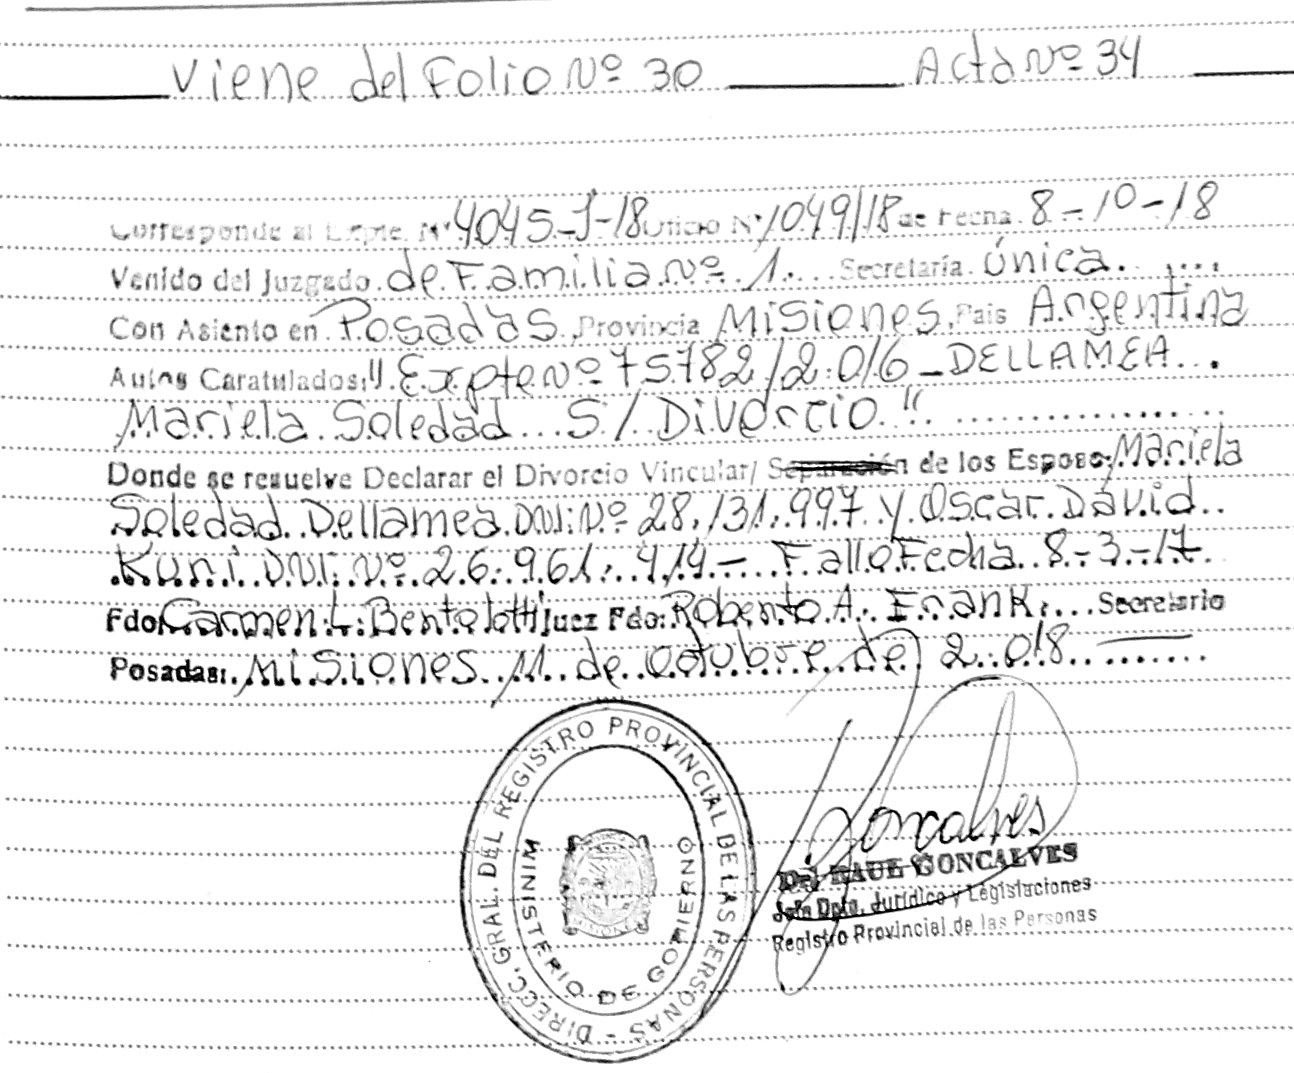 Viene del Folio Nº 30 Acta Nº 34
Corresponde al Expte. Nº 4045-J-18 Oficio Nº 1049/18 de Fecha 8-10-18
Venido del Juzgado de Familia Nº 1. Secretaría Única.
Con Asiento en Posadas, Provincia Misiones, Pais Argentina
Autos Caratulados: "Expte Nº 75782/2.016 - DELLAMEA
Mariela Soledad S/ Divorcio"
Donde se resuelve Declarar el Divorcio Vincular/ Separación de los Esposos: Mariela
Soledad Dellamea DNI: Nº 28.131.997 y Oscar David
Kuni DNI: Nº 26.961.414 - Fallo Fecha 8-3-17
Fdo: Carmen L. Bentolotti Juez Fdo: Roberto A. Frank. Secretario
Posadas: Misiones 11 de octubre de 2.018
DIRECC. GRAL. DEL REGISTRO PROVINCIAL DE LAS PERSONAS -
MINISTERIO DE GOBIERNO
MISIONES
Goncalves
Dr. RAUL GONCALVES
Jefe Dpto. Jurídico y Legislaciones
Registro Provincial de las Personas